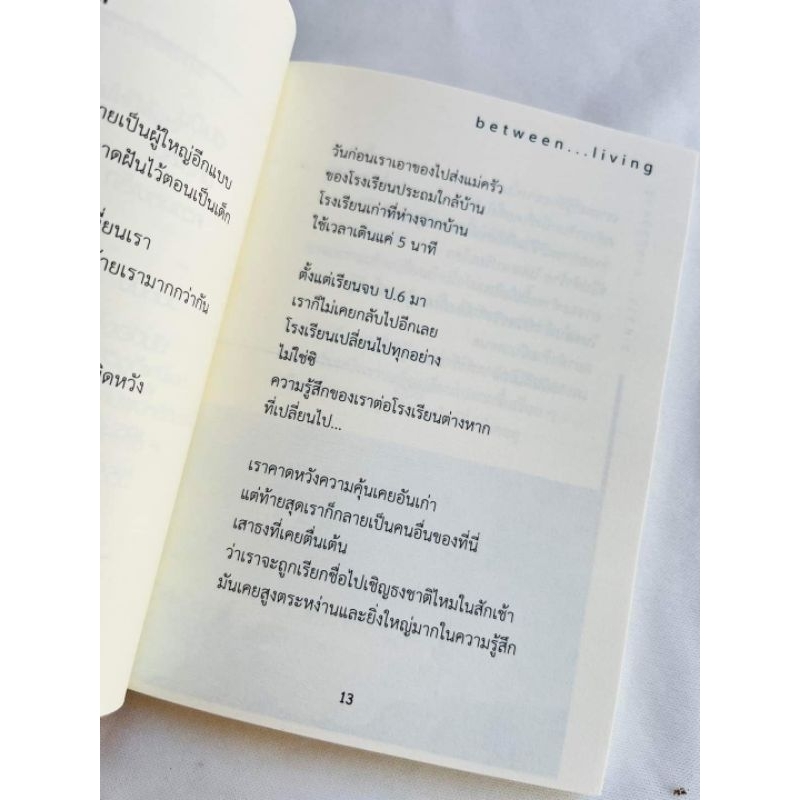 เป็นผู้ใหญ่อีกแบบ
ฝันไว้ตอนเป็นเด็ก
เรา
เรามากกว่ากัน
หวัง
between...living
วันก่อนเราเอาของไปส่งแม่ครัว
ของโรงเรียนประถมใกล้บ้าน
โรงเรียนเก่าที่ห่างจากบ้าน
ใช้เวลาเดินแค่ 5 นาที
ตั้งแต่เรียนจบ ป.6 มา
เราก็ไม่เคยกลับไปอีกเลย
โรงเรียนเปลี่ยนไปทุกอย่าง
ไม่ใช่ซิ
ความรู้สึกของเราต่อโรงเรียนต่างหาก
ที่เปลี่ยนไป...
เราคาดหวังความคุ้นเคยอันเก่า
แต่ท้ายสุดเราก็กลายเป็นคนอื่นของที่นี่
เสาธงที่เคยตื่นเต้น
ว่าเราจะถูกเรียกชื่อไปเชิญธงชาติไหมในสักเช้า
มันเคยสูงตระหง่านและยิ่งใหญ่มากในความรู้สึก
13